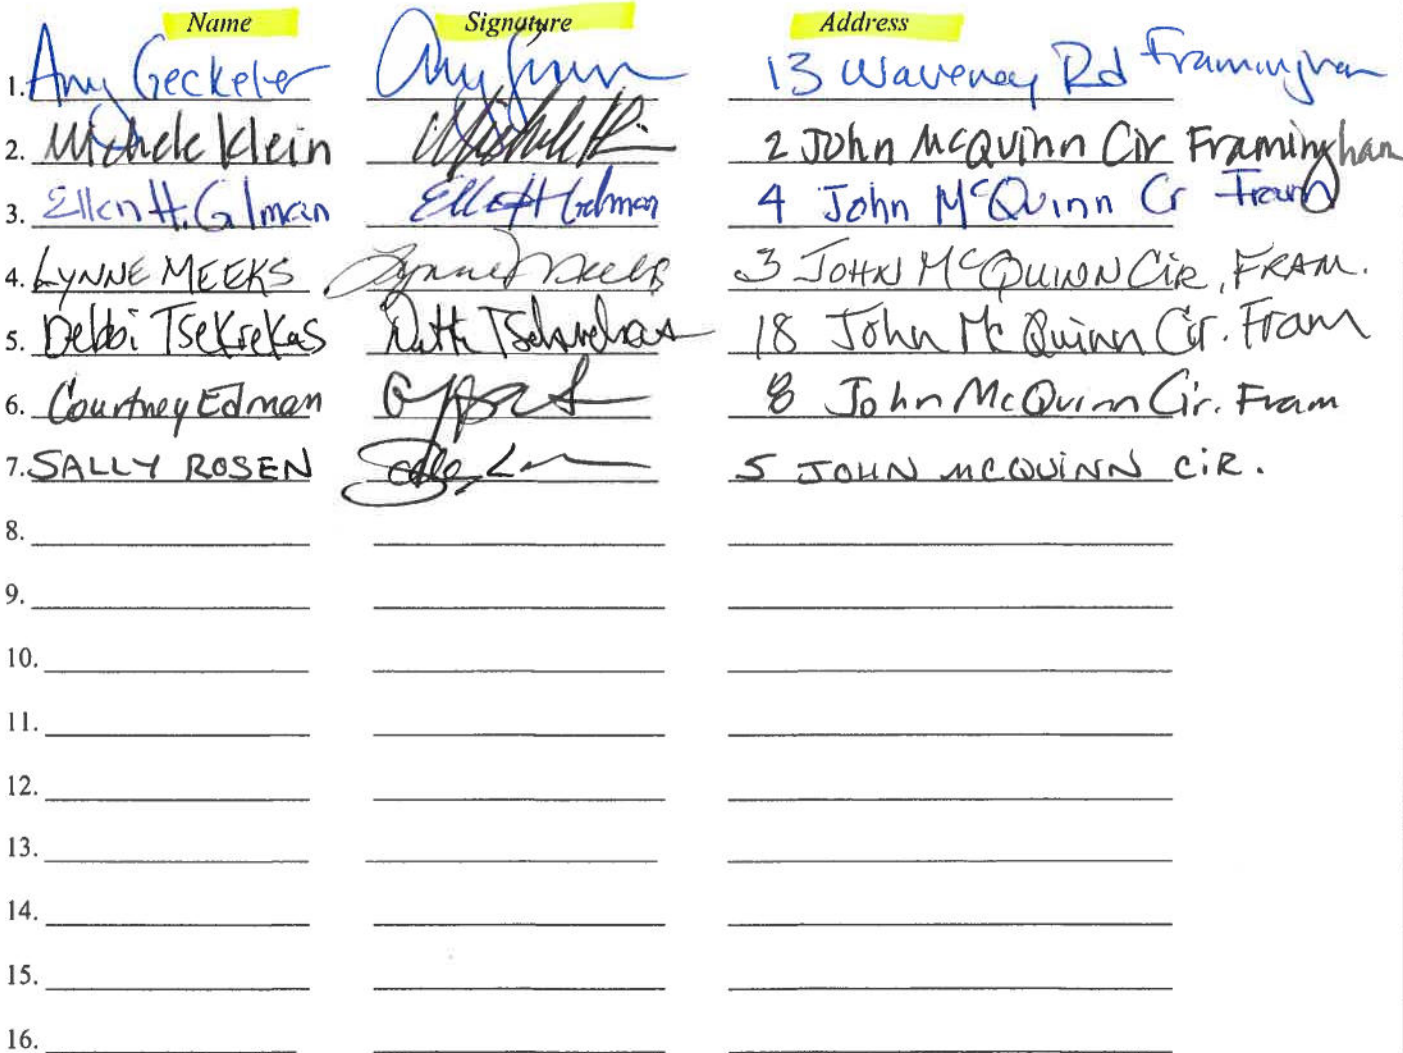 Name Signature Address
1. Amy Geckeler Amy 13 Waveney Rd Framingham
2. Michele Klein Michele K 2 John McQuinn Cir Framingham
3. Ellen H. Gilman Ellen H Gilman 4 John McQuinn Cr Fram
4. LYNNE MEEKS Lynne Meeks 3 JOHN McQUINN CIR, FRAM.
5. Debbi Tsekrekas Tsekrekas 18 John McQuinn Cir. Fram
6. Courtney Edman 8 John McQuinn Cir. Fram
7. SALLY ROSEN Sally 5 JOHN MCQUINN CiR.
8.
9.
10.
11.
12.
13.
14.
15.
16.